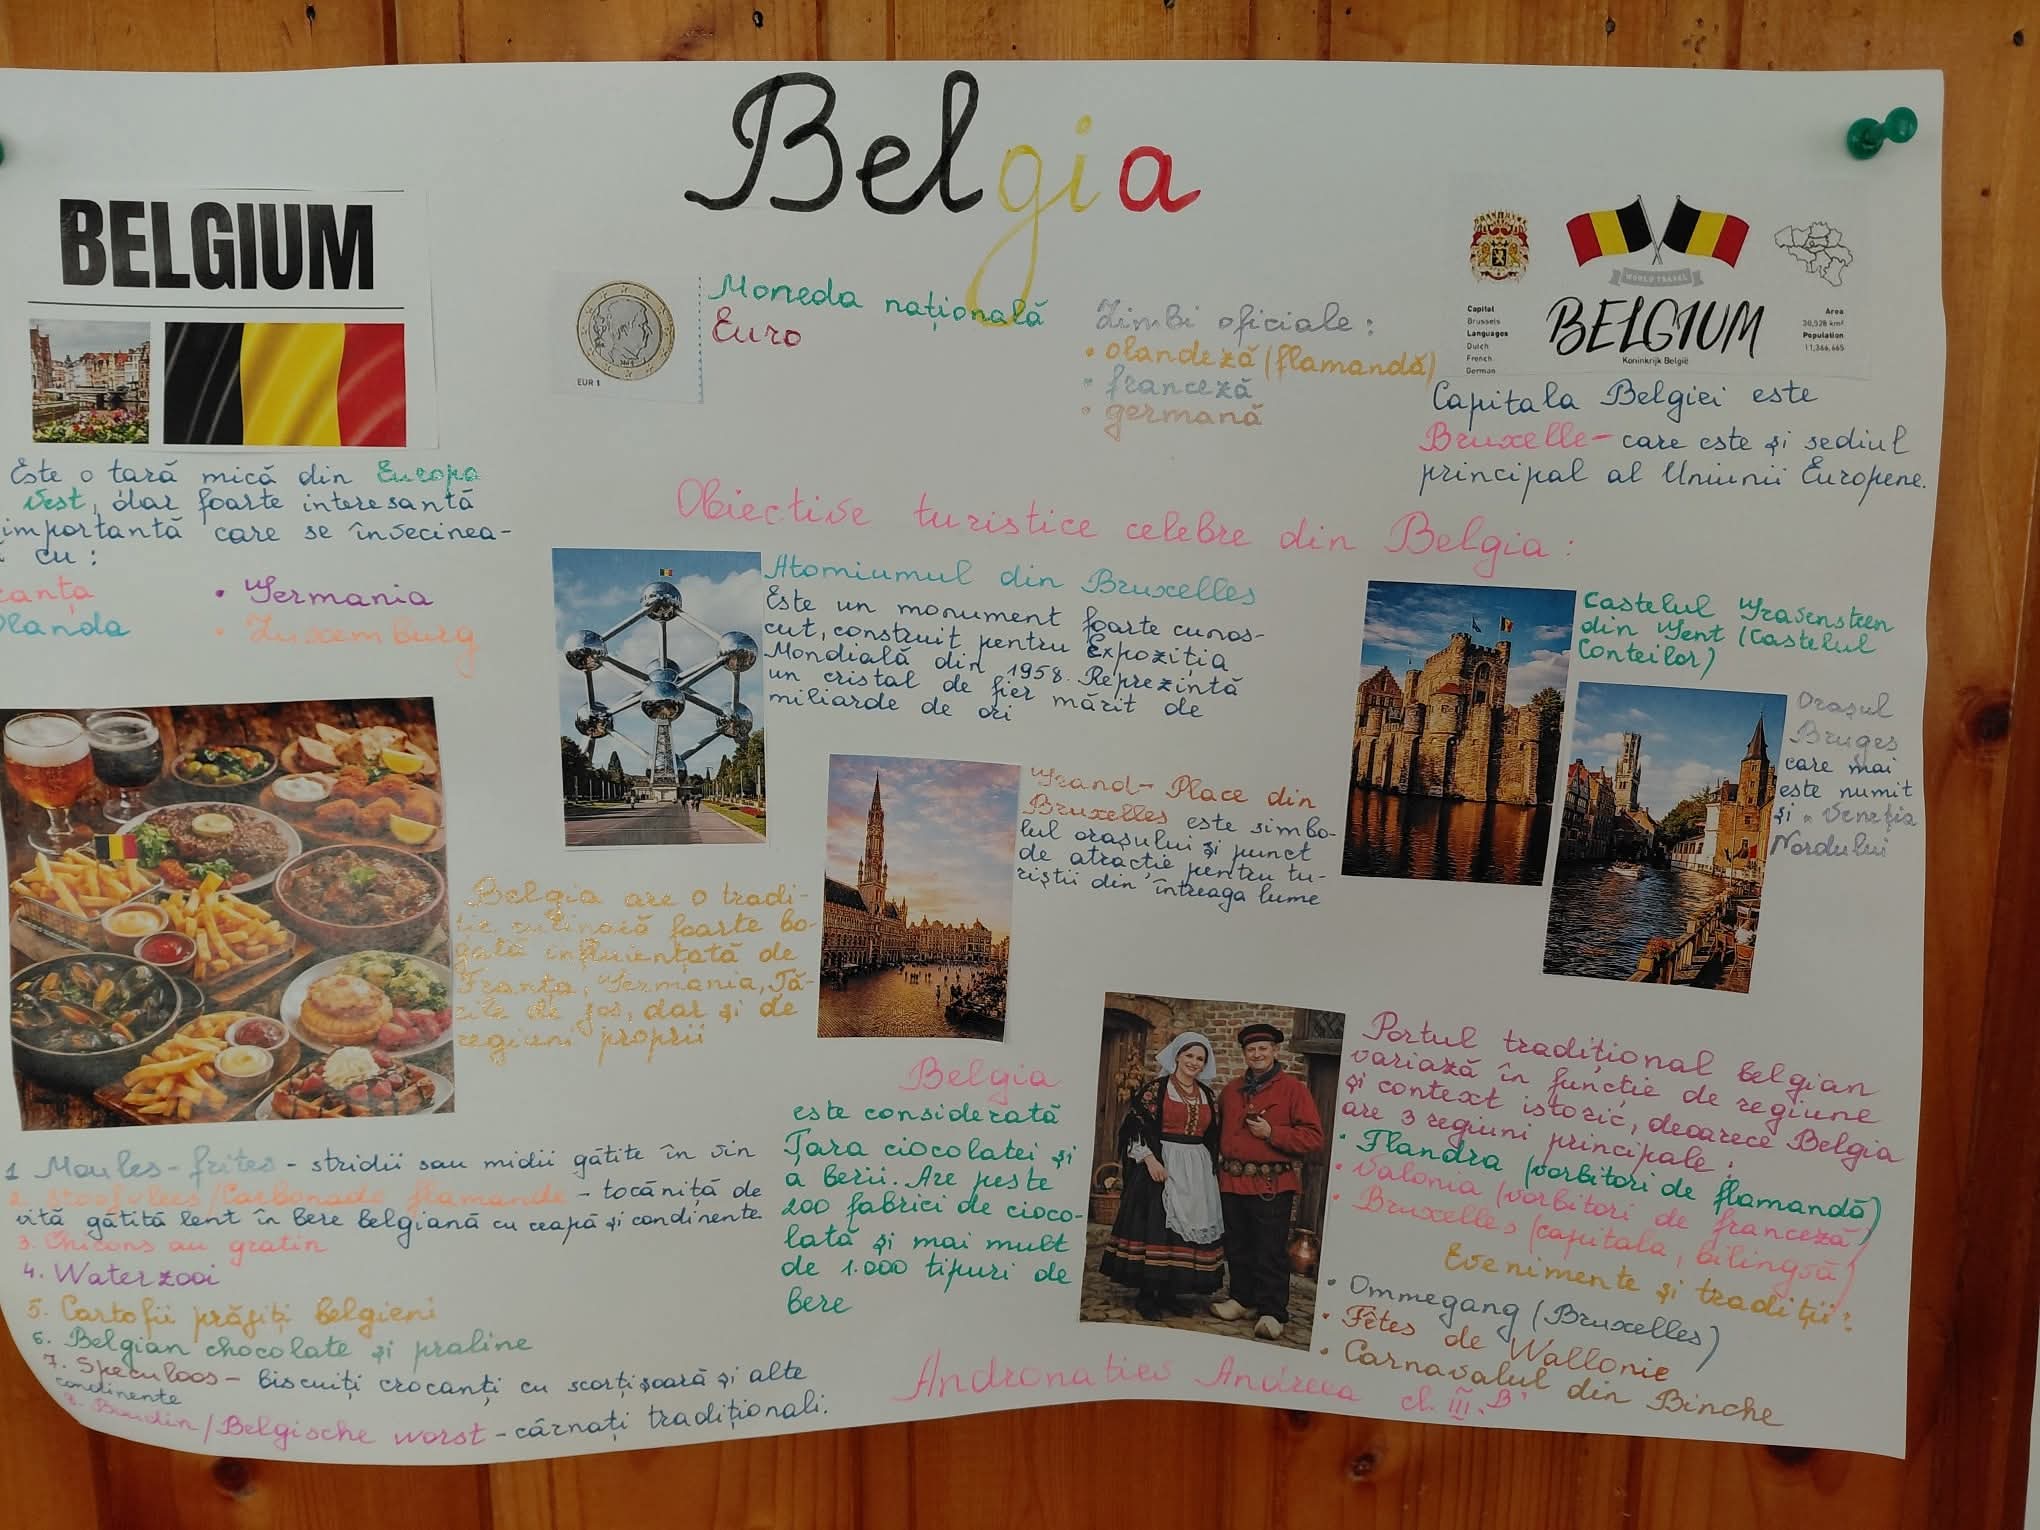 Belgia
BELGIUM
Este o țară mică din Europa
Vest, dar foarte interesantă
importantă care se învecinea-
cu:
anța
landa
• Germania
• Luxemburg
EUR 1
Moneda națională
Euro
Limbi oficiale:
• olandeză (flamandă)
• franceză
• germană
WORLD TRAVEL
BELGIUM
Koninkrijk België
Capital
Brussels
Languages
Dutch
French
German
Area
30,528 km²
Population
11,366,665
Capitala Belgiei este
Bruxelle - care este și sediul
principal al Uniunii Europene.
Obiective turistice celebre din Belgia:
Atomiumul din Bruxelles
Este un monument foarte cunos-
cut, construit pentru Expoziția
Mondială din 1958. Reprezintă
un cristal de fier mărit de
miliarde de ori
Grand-Place din
Bruxelles este simbo-
lul orașului și punct
de atracție pentru tu-
riștii din întreaga lume
Castelul Gravensteen
din Gent (Castelul
Conteilor)
Orașul
Bruges
care mai
este numit
și "Veneția
Nordului
Belgia are o tradi-
ție culinară foarte bo-
gată influiențată de
Franța, Germania, Tă-
rile de jos, dar și de
regiuni proprii
1 Moules-frites - stridii sau midii gătite în vin
2. Stoofvlees/Carbonade flamande - tocăniță de
vită gătită lent în bere belgiană cu ceapă și condinente
3. Chicons au gratin
4. Waterzooi
5. Cartofii prăjiți belgieni
6. Belgian chocolate și praline
7. Speculoos - biscuiți crocanți cu scorțișoară și alte
condinente
8. Boudin/Belgische worst - cârnați tradiționali.
Belgia
este considerată
Țara ciocolatei și
a berii. Are peste
200 fabrici de cioco-
lată și mai mult
de 1.000 tipuri de
bere
Portul tradițional belgian
variază în funcție de regiune
și context istoric, deoarece Belgia
are 3 regiuni principale:
• Flandra (vorbitori de flamandă)
• Valonia (vorbitori de franceză)
• Bruxelles (capitala, bilingvă)
Evenimente și tradiții:
• Ommegang (Bruxelles)
• Fêtes de Wallonie
• Carnavalul din Binche
Andronatiev Andreea cl. III. B